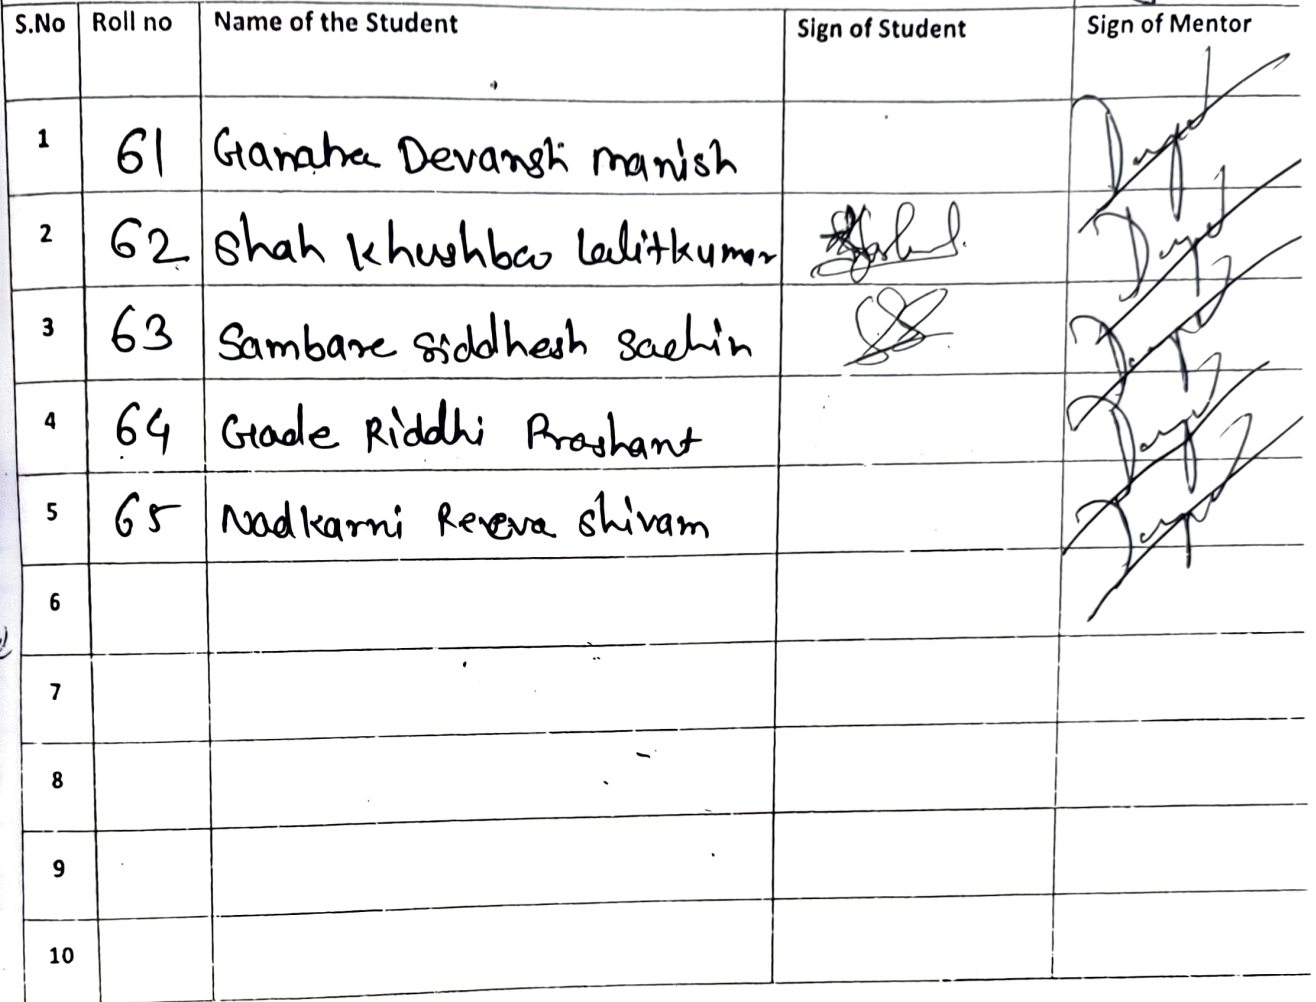 S.No Roll no Name of the Student Sign of Student Sign of Mentor
1 61 Devansh manish
2 62 Shah Khushboo Lalitkumar
3 63 Sambare Siddhesh Sachin
4 64 Gade Riddhi Prashant
5 65 Nadkarni Shivam
6
7
8
9
10